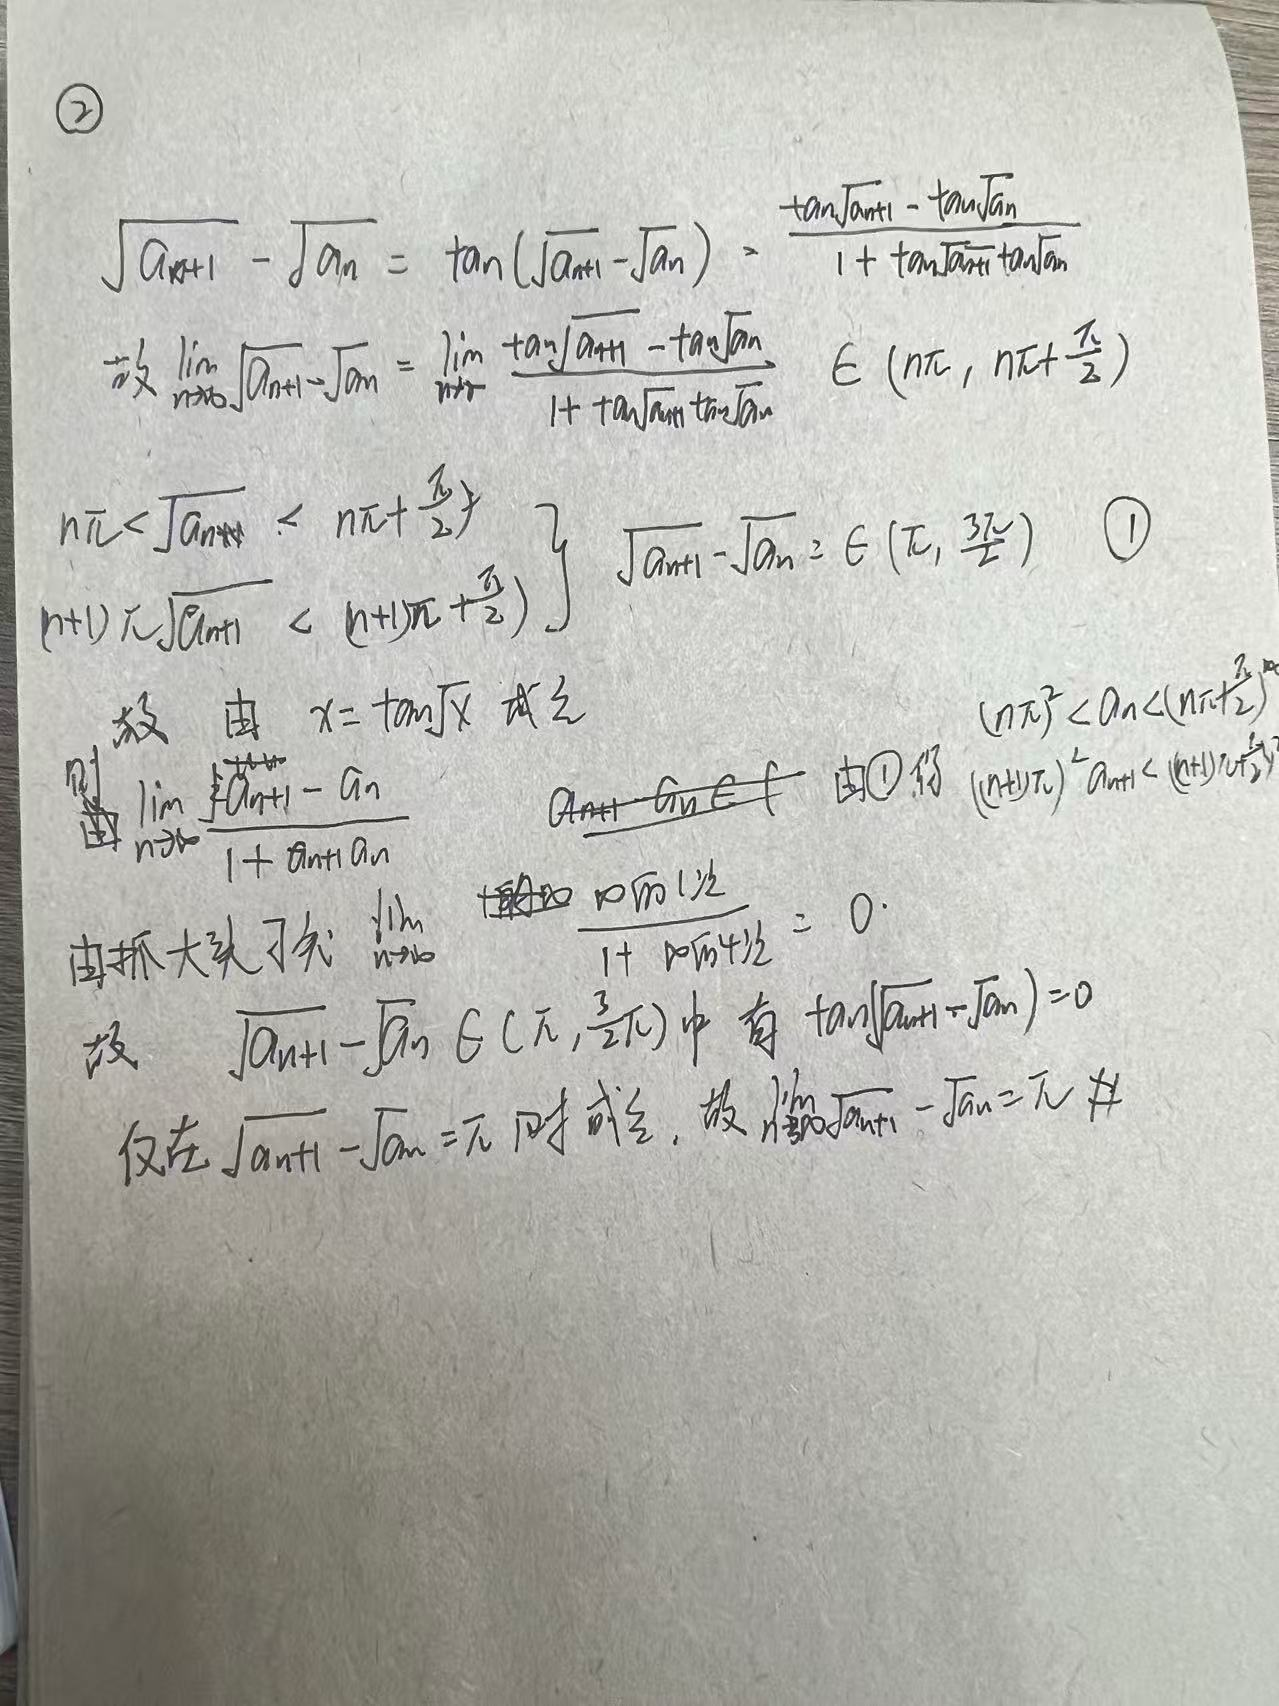 ②
√(a_{n+1}) - √(a_n) = tan(√(a_{n+1}) - √(a_n)) = (tan√(a_{n+1}) - tan√(a_n)) / (1 + tan√(a_{n+1}) tan√(a_n))
故 lim_{n→∞} √(a_{n+1}) - √(a_n) = lim_{n→∞} (tan√(a_{n+1}) - tan√(a_n)) / (1 + tan√(a_{n+1}) tan√(a_n)) ∈ (nπ, nπ + π/2)
nπ < √(a_n) < nπ + π/2 } √(a_{n+1}) - √(a_n) = ∈ (π, 3π/2) ①
(n+1)π √(a_{n+1}) < (n+1)π + π/2)
故 由 x = tan√x 成立
则 lim_{n→∞} (a_{n+1} - a_n) / (1 + a_{n+1} a_n) 由①得 (nπ)² < a_n < (nπ + π/2)²
((n+1)π)² a_{n+1} < ((n+1)π + π/2)²
由抓大头可知 lim_{n→∞} ∞的1次 / (1 + ∞的4次) = 0.
故 √(a_{n+1}) - √(a_n) ∈ (π, 3/2 π) 中 有 tan(√(a_{n+1}) - √(a_n)) = 0
仅在 √(a_{n+1}) - √(a_n) = π 时成立, 故 lim_{n→∞} √(a_{n+1}) - √(a_n) = π #